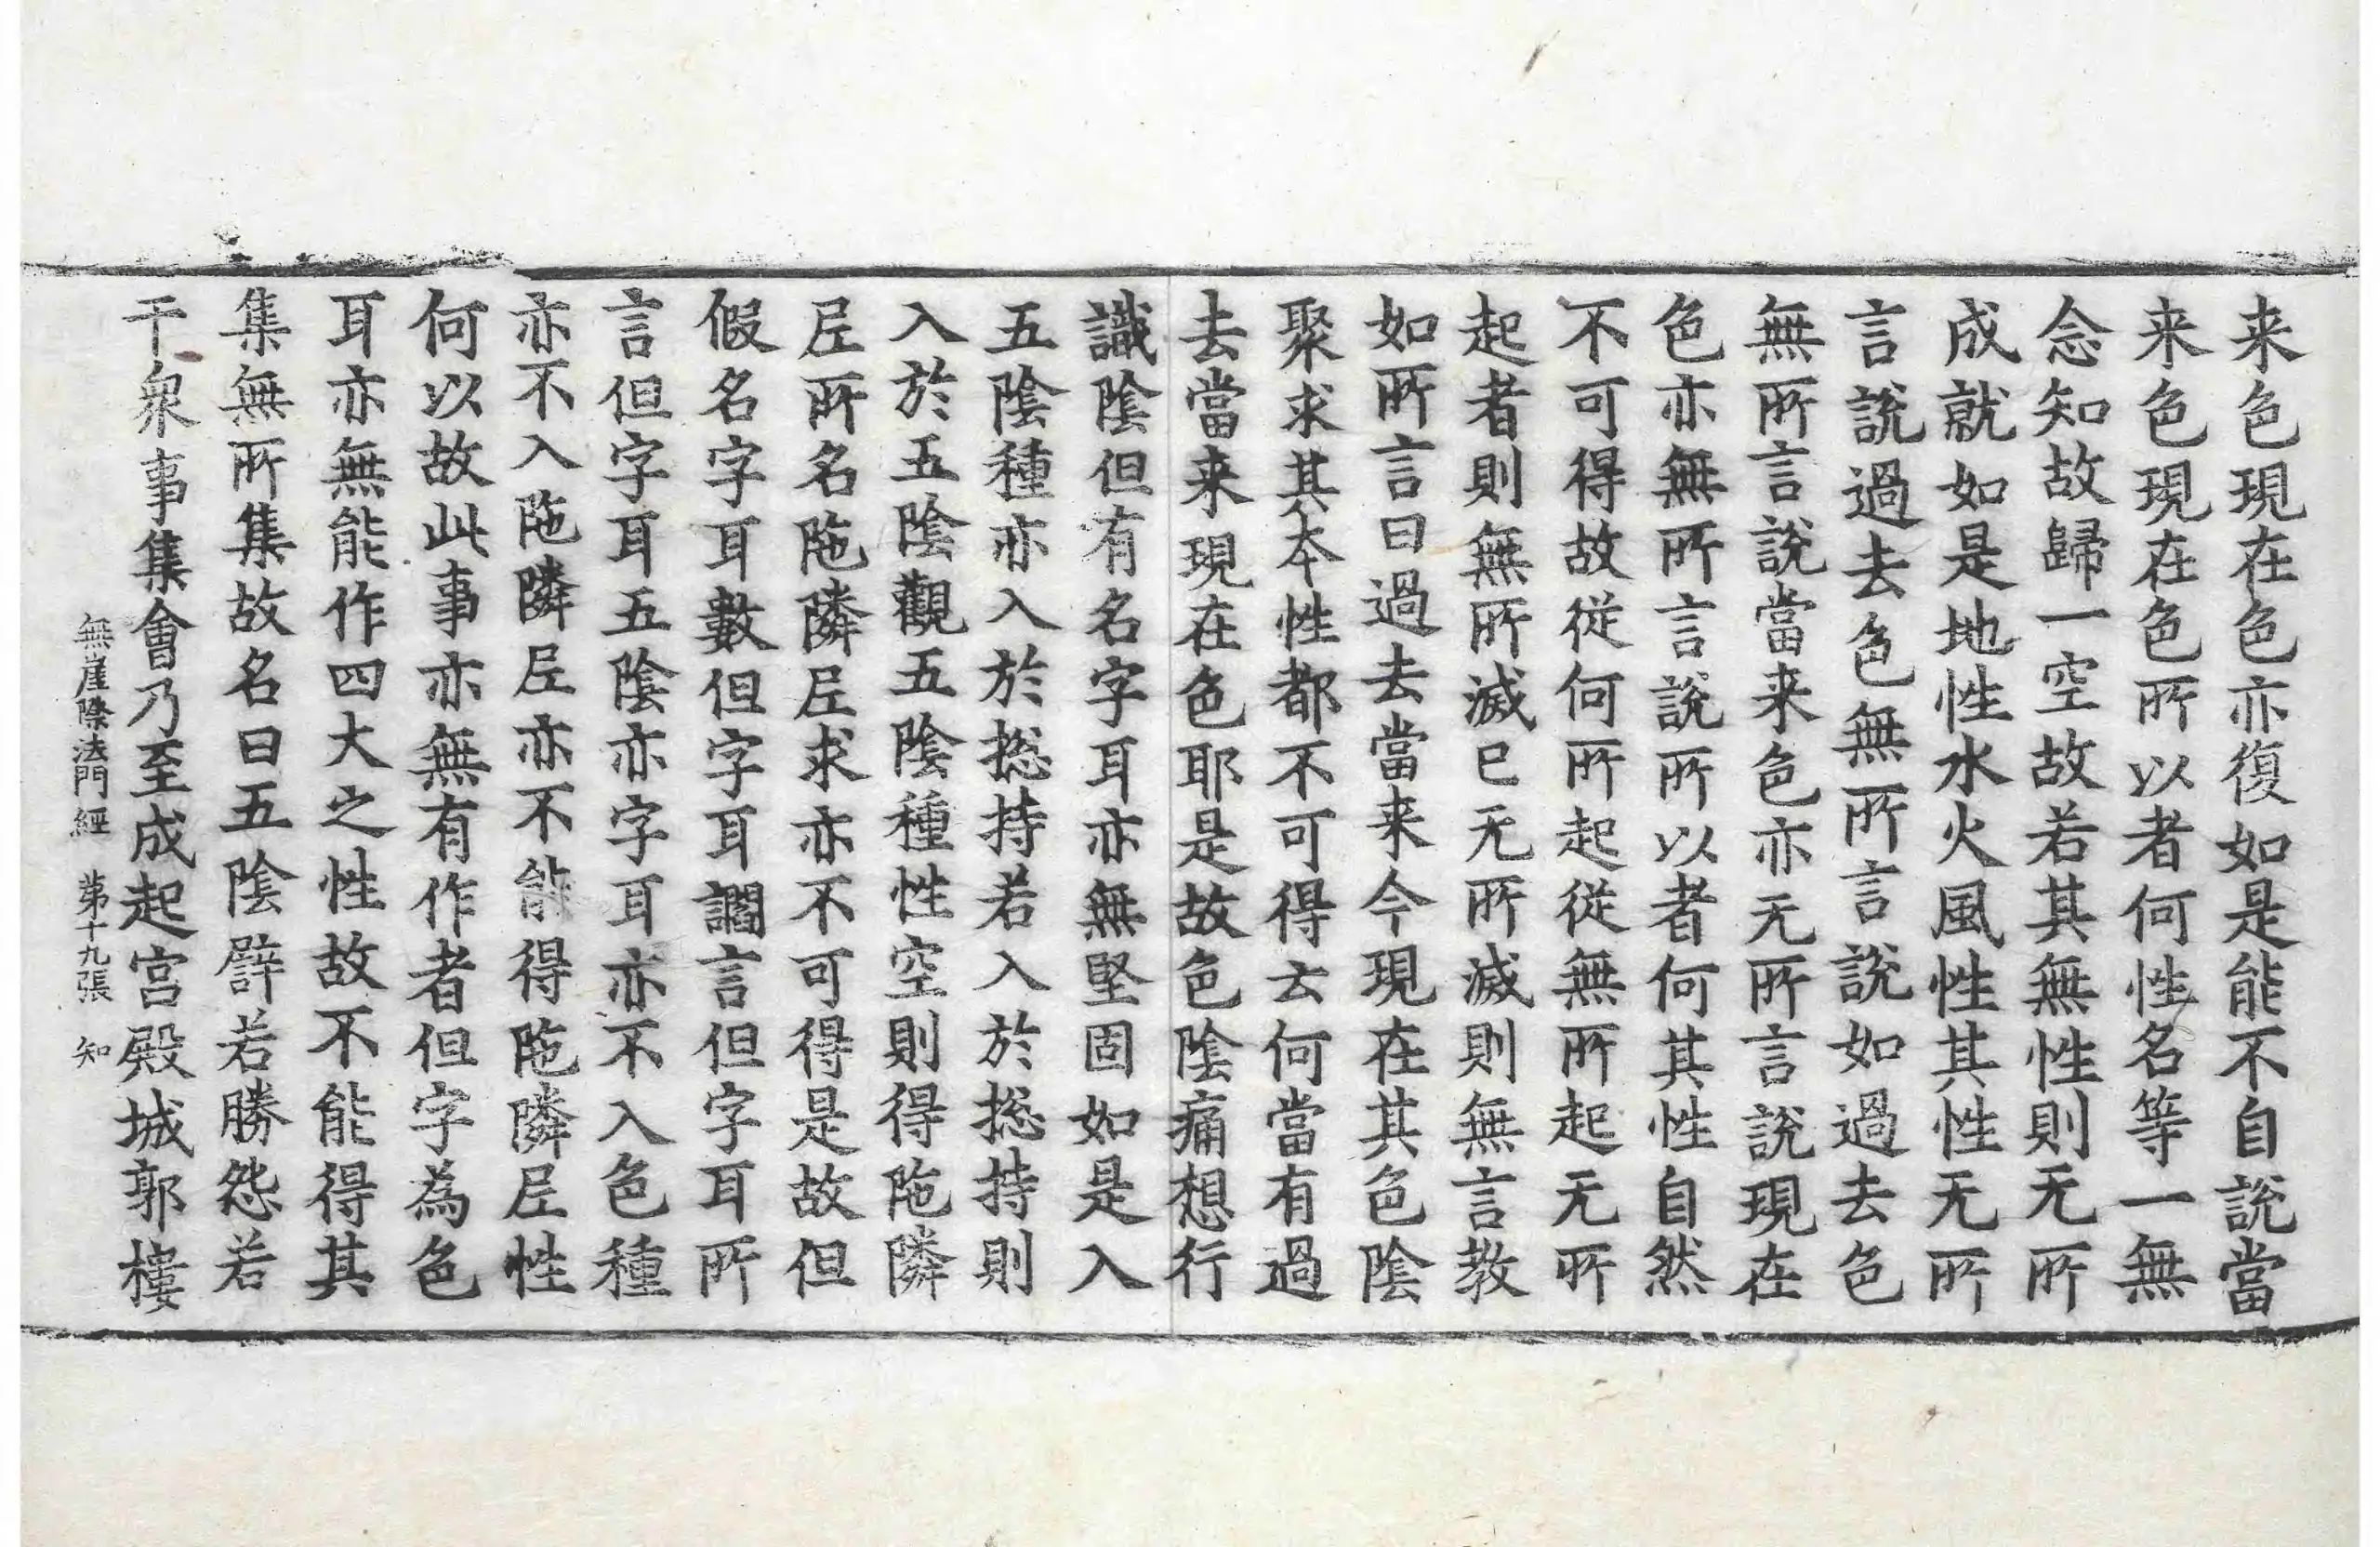 来色現在色亦復如是能不自說當
来色現在色所以者何性名等一無
念知故歸一空故若其無性則无所
成就如是地性水火風性其性无所
言說過去色無所言說如過去色
無所言說當来色亦无所言說現在
色亦無所言說所以者何其性自然
不可得故從何所起從無所起无所
起者則無所滅已无所滅則無言教
如所言曰過去當来今現在其色陰
聚求其本性都不可得云何當有過
去當来現在色耶是故色陰痛想行
識陰但有名字耳亦無堅固如是入
五陰種亦入於捴持若入於捴持則
入於五陰觀五陰種性空則得陁隣
尼所名陁隣尼求亦不可得是故但
假名字耳數但字耳讇言但字耳所
言但字耳五陰亦字耳亦不入色種
亦不入陁隣尼亦不能得陁隣尼性
何以故此事亦無有作者但字為色
耳亦無能作四大之性故不能得其
集無所集故名曰五陰譬若勝怨若
干衆事集會乃至成起宮殿城郭樓
無崖際法門經 苐十九張 知